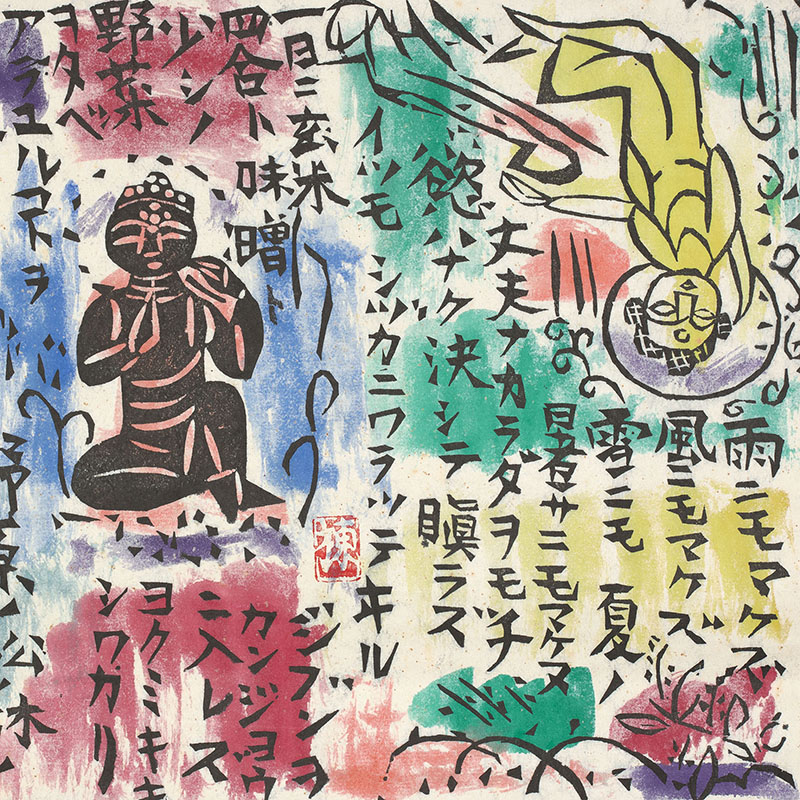 雨ニモマケズ
風ニモマケズ
雪ニモ夏ノ
暑サニモマケヌ
丈夫ナカラダヲモチ
慾ハナク決シテ瞋ラズ
イツモシヅカニワラッテヰル
一日ニ玄米
四合ト味噌ト
少シノ
野菜
ヲタベ
アラユルコトヲ
ジブンヲ
カンジョウ
ニ入レズ
ヨクミキキ
シワカリ
野原ノ松